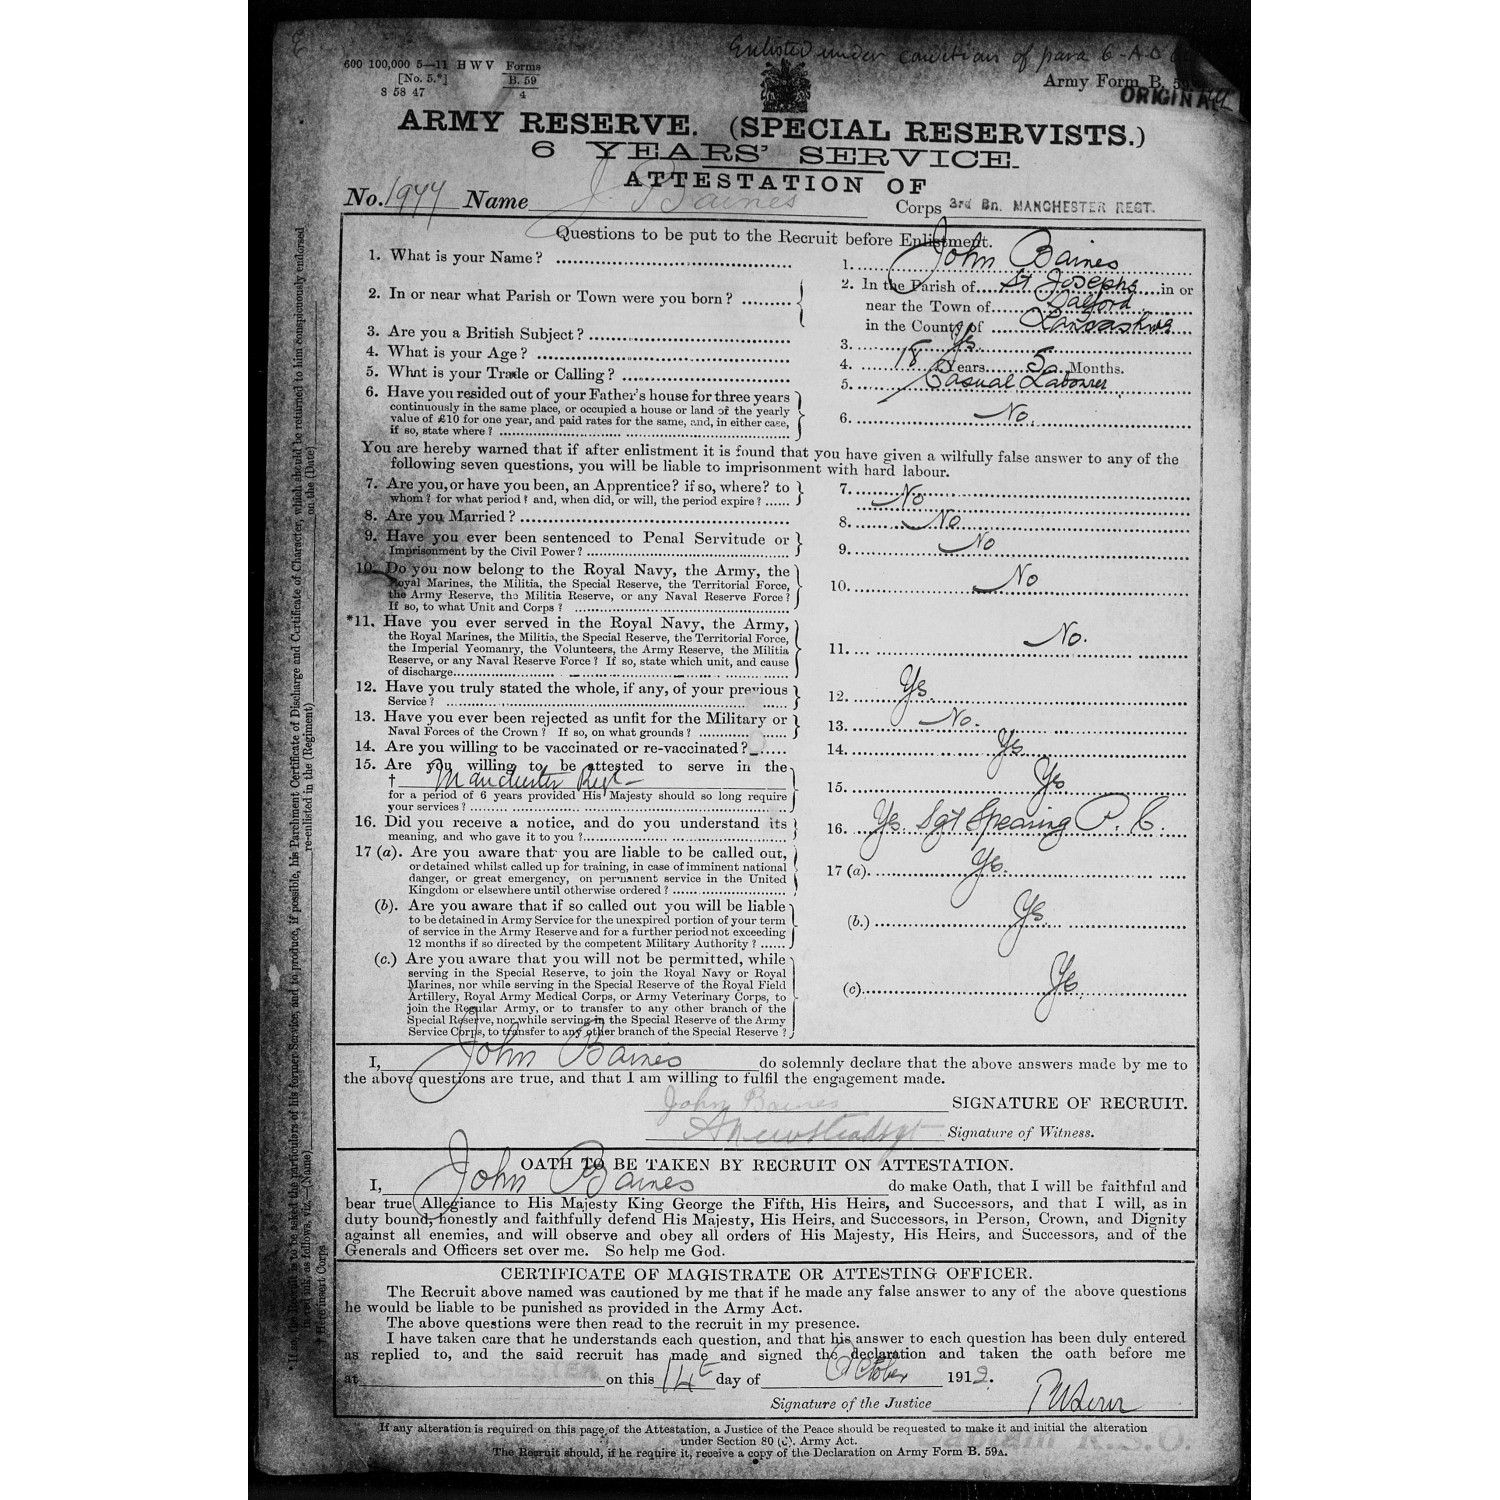 Enlisted under conditions of para 6-A.O.
600 100,000 5—11 H W V Forms
[No. 5.*] B. 59
8 58 47 4
Army Form B. 59.
ORIGINAL
ARMY RESERVE. (SPECIAL RESERVISTS.)
6 YEARS' SERVICE.
ATTESTATION OF
No. 1944 Name J. Baines Corps 3rd Bn. MANCHESTER REGT.
Questions to be put to the Recruit before Enlistment.
1. What is your Name? 1. John Baines
2. In or near what Parish or Town were you born? 2. In the Parish of St Josephs in or
near the Town of Salford
in the County of Lancashire
3. Are you a British Subject? 3. Yes.
4. What is your Age? 4. 18 Years 5 Months.
5. What is your Trade or Calling? 5. Casual Labourer
6. Have you resided out of your Father's house for three years
continuously in the same place, or occupied a house or land of the yearly
value of £10 for one year, and paid rates for the same, and, in either case,
if so, state where? 6. No.
You are hereby warned that if after enlistment it is found that you have given a wilfully false answer to any of the
following seven questions, you will be liable to imprisonment with hard labour.
7. Are you, or have you been, an Apprentice? if so, where? to
whom? for what period? and, when did, or will, the period expire? 7. No
8. Are you Married? 8. No
9. Have you ever been sentenced to Penal Servitude or
Imprisonment by the Civil Power? 9. No
10. Do you now belong to the Royal Navy, the Army, the
Royal Marines, the Militia, the Special Reserve, the Territorial Force,
the Army Reserve, the Militia Reserve, or any Naval Reserve Force?
If so, to what Unit and Corps? 10. No
*11. Have you ever served in the Royal Navy, the Army,
the Royal Marines, the Militia, the Special Reserve, the Territorial Force,
the Imperial Yeomanry, the Volunteers, the Army Reserve, the Militia
Reserve, or any Naval Reserve Force? If so, state which unit, and cause
of discharge 11. No.
12. Have you truly stated the whole, if any, of your previous
Service? 12. Yes.
13. Have you ever been rejected as unfit for the Military or
Naval Forces of the Crown? If so, on what grounds? 13. No.
14. Are you willing to be vaccinated or re-vaccinated? 14. Yes
15. Are you willing to be attested to serve in the
† Manchester Regt
for a period of 6 years provided His Majesty should so long require
your services? 15. Yes
16. Did you receive a notice, and do you understand its
meaning, and who gave it to you? 16. Yes. Sgt Spearing P. C.
17 (a). Are you aware that you are liable to be called out,
or detained whilst called up for training, in case of imminent national
danger, or great emergency, on permanent service in the United
Kingdom or elsewhere until otherwise ordered? 17 (a). Yes.
(b). Are you aware that if so called out you will be liable
to be detained in Army Service for the unexpired portion of your term
of service in the Army Reserve and for a further period not exceeding
12 months if so directed by the competent Military Authority? (b.) Yes.
(c.) Are you aware that you will not be permitted, while
serving in the Special Reserve, to join the Royal Navy or Royal
Marines, nor while serving in the Special Reserve of the Royal Field
Artillery, Royal Army Medical Corps, or Army Veterinary Corps, to
join the Regular Army, or to transfer to any other branch of the
Special Reserve, nor while serving in the Special Reserve of the Army
Service Corps, to transfer to any other branch of the Special Reserve? (c) Yes.
I, John Baines do solemnly declare that the above answers made by me to
the above questions are true, and that I am willing to fulfil the engagement made.
John Baines SIGNATURE OF RECRUIT.
Signature of Witness.
OATH TO BE TAKEN BY RECRUIT ON ATTESTATION.
I, John Baines do make Oath, that I will be faithful and
bear true Allegiance to His Majesty King George the Fifth, His Heirs, and Successors, and that I will, as in
duty bound, honestly and faithfully defend His Majesty, His Heirs, and Successors, in Person, Crown, and Dignity
against all enemies, and will observe and obey all orders of His Majesty, His Heirs, and Successors, and of the
Generals and Officers set over me. So help me God.
CERTIFICATE OF MAGISTRATE OR ATTESTING OFFICER.
The Recruit above named was cautioned by me that if he made any false answer to any of the above questions
he would be liable to be punished as provided in the Army Act.
The above questions were then read to the recruit in my presence.
I have taken care that he understands each question, and that his answer to each question has been duly entered
as replied to, and the said recruit has made and signed the declaration and taken the oath before me
at on this 14th day of October 1912.
Signature of the Justice
If any alteration is required on this page of the Attestation, a Justice of the Peace should be requested to make it and initial the alteration
under Section 80 (6). Army Act.
The Recruit should, if he require it, receive a copy of the Declaration on Army Form B. 59A.
* If so, the Recruit is to be asked the particulars of his former Service, and to produce, if possible, his Parchment Certificate of Discharge and Certificate of Character, which should be returned to him conspicuously endorsed
in red ink, as follows, viz.—(Name) re-enlisted in the (Regiment) on the (Date)
† Here insert Corps.